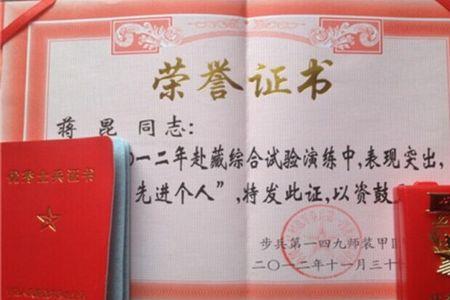 荣誉证书
蒋昆 同志：
〇一二年赴藏综合试验演练中,表现突出,
先进个人”,特发此证,以资鼓
步兵第一四九师装甲
二〇一二年十一月三十
优秀士兵证书